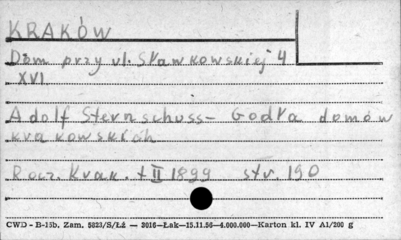 KRAKÓW
Dom przy ul. Sławkowskiej 4
XVI.
Adolf Sternschuss - Godła domów
krakowskich
Rocz. Krak. t II 1899 str. 190
CWD - B-15b. Zam. 5823/S/Łż — 3016—Łak—15.11.56—4.000.000—Karton kl. IV A1/200 g